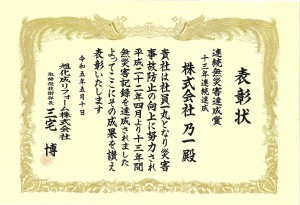 表彰状
連続無災害達成賞
十三年連続達成
株式会社 乃一殿
貴社は社員一丸となり災害
事故防止の向上に努力され
平成二十二年四月より十三年間
無災害記録を達成されました
よってここにその成果を讃え
表彰いたします
令和五年五月十日
旭化成リフォーム株式会社
取締役技術部長
三宅 博